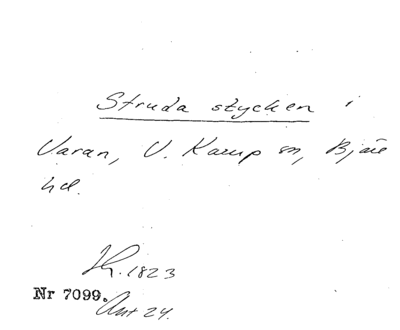 Struda stycken i
Varan, V. Karup sn, Bjäre
hd.
Th. 1823
Nr 7099.
Ant 24.